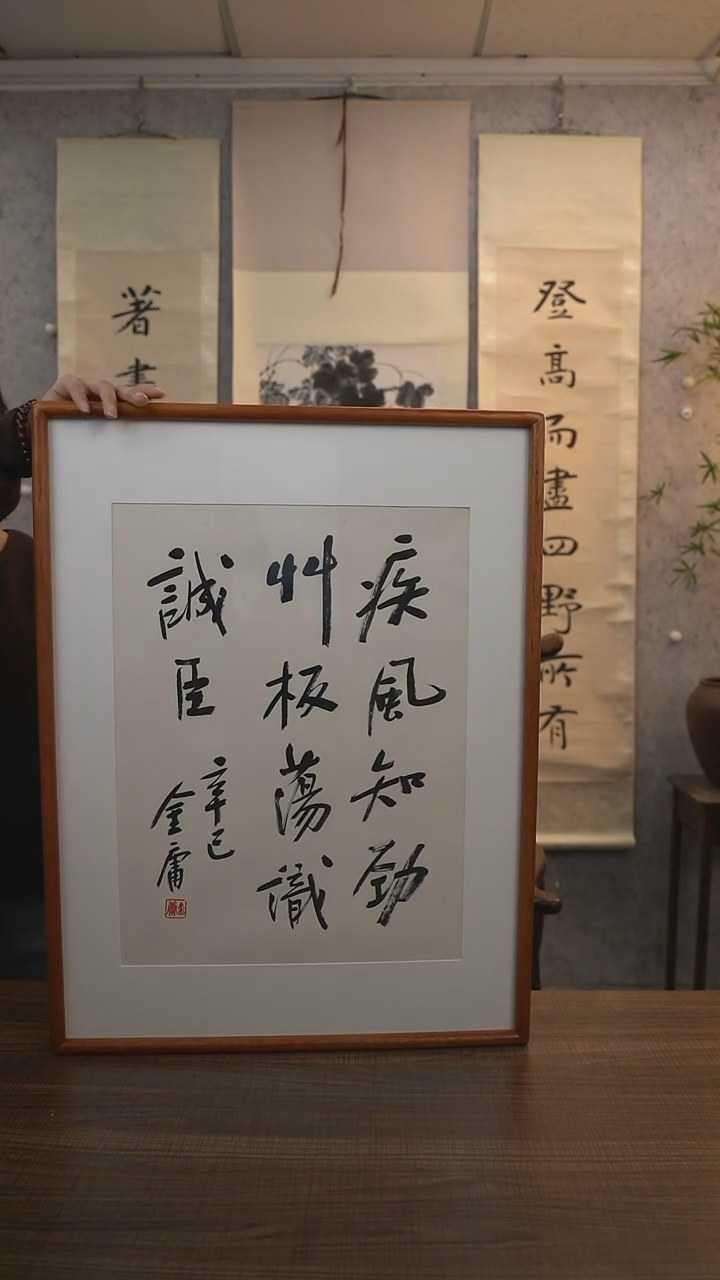 疾風知勁
艸板蕩識
誠臣
辛巳
金庸
登高而盡四野所有
著書